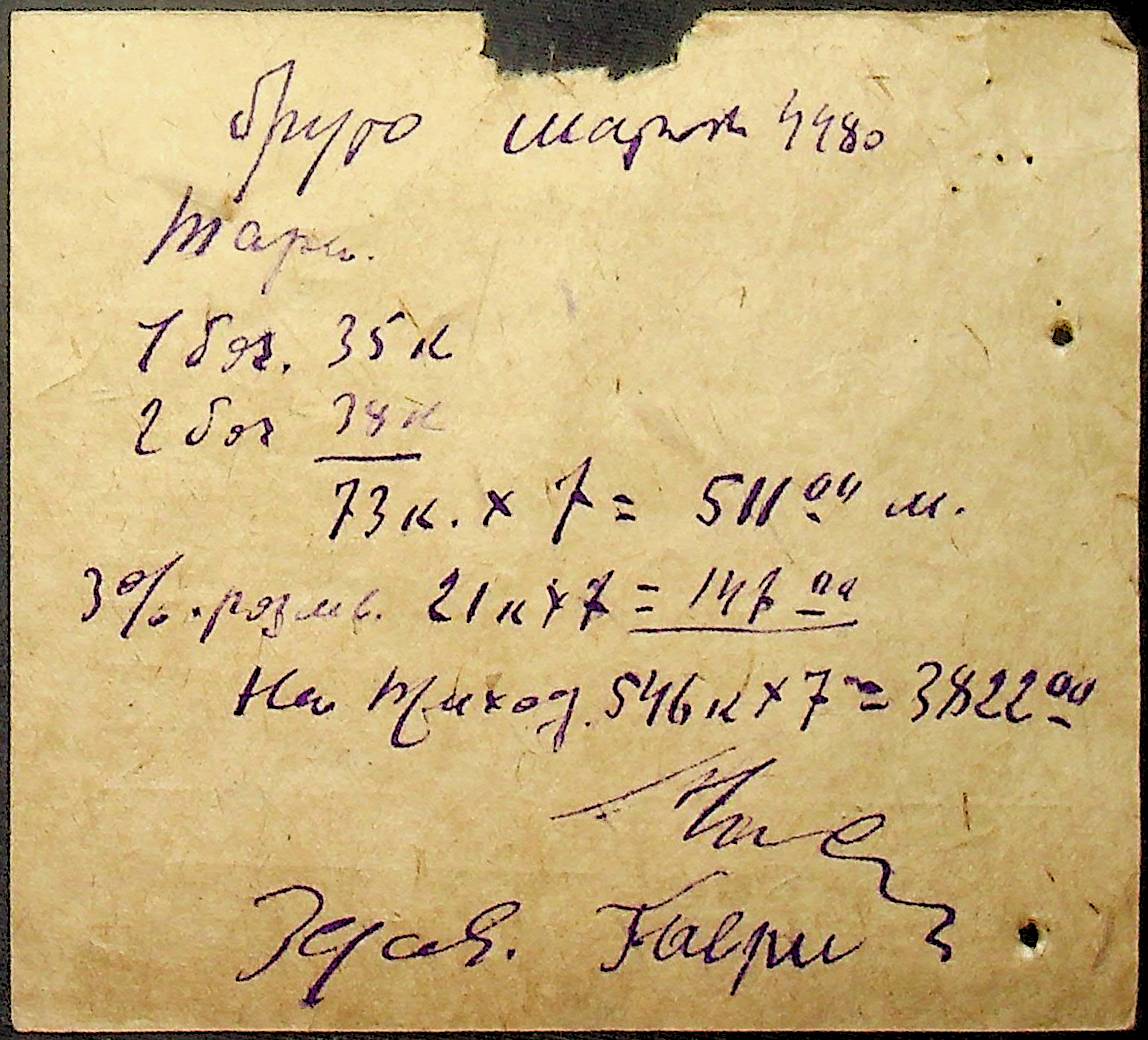 бруто марки 4480
Тара.
1 боч. 35 к
2 боч 38 к
73 к. х 7 = 511 00 м.
3% розмв. 21 к х 7 = 147 00
На приход. 546 к х 7 = 3822 00
Здав. Гаври